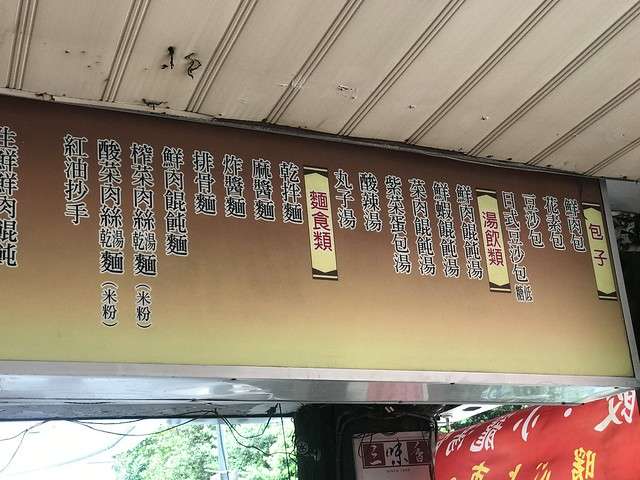 包子
鮮肉包
花素包
豆沙包
日式豆沙包 低糖
湯飲類
鮮肉餛飩湯
鮮蝦餛飩湯
菜肉餛飩湯
紫菜蛋包湯
酸辣湯
丸子湯
麵食類
乾拌麵
麻醬麵
炸醬麵
排骨麵
鮮肉餛飩麵
榨菜肉絲湯乾麵(米粉)
酸菜肉絲湯乾麵(米粉)
紅油抄手
生鮮鮮肉餛飩
三味香
SINCE